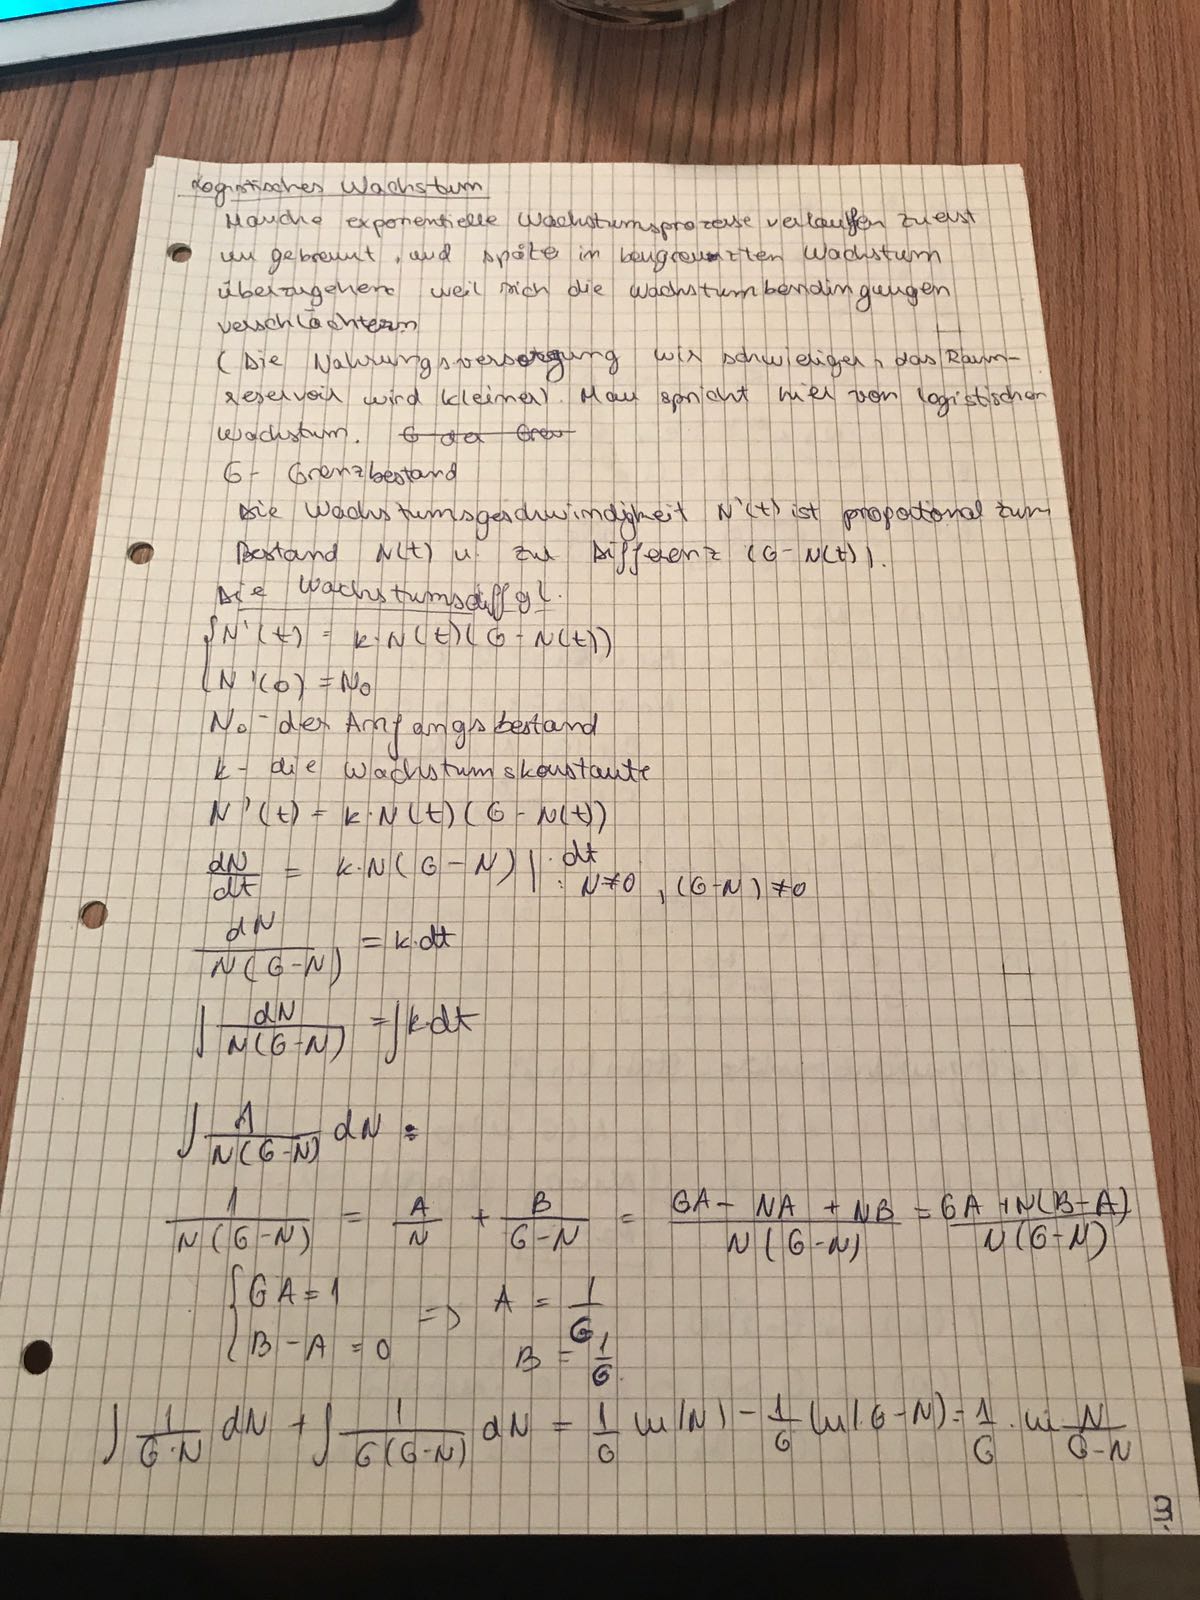 Logistisches Wachstum
Manche exponentielle Wachstumsprozesse verlaufen zuerst
un gebremt, und späte in bengrenzten Wachstum
überzugehen weil sich die wachstumbendingungen
verschlächtern
(Die Nahrungsversorgung wir schwieriger, das Raum-
reservoir wird kleiner). Man spricht hier von logistischen
Wachstum. G der Gren
G - Grenzbestand
Die Wachstumsgeschwindigkeit N'(t) ist proportional zum
Bestand N(t) u. zur Differenz (G-N(t)).
Die Wachstumsdiffgl.
{N'(t) = k·N(t)(G-N(t))
{N'(0) = N₀
N₀ - der Anfangsbestand
k - die Wachstumskonstante
N'(t) = k·N(t)(G-N(t))
dN/dt = k·N(G-N) | ·dt : N≠0, (G-N)≠0
dN/(N(G-N)) = k·dt
∫ dN/(N(G-N)) = ∫k·dt
∫ 1/(N(G-N)) dN =
1/(N(G-N)) = A/N + B/(G-N) = (GA - NA + NB)/(N(G-N)) = (GA + N(B-A))/(N(G-N))
{GA = 1 => A = 1/G
{B - A = 0 B = 1/G
∫ 1/(G·N) dN + ∫ 1/(G(G-N)) dN = 1/G ln|N| - 1/G ln|G-N| = 1/G · ln N/(G-N)
3.